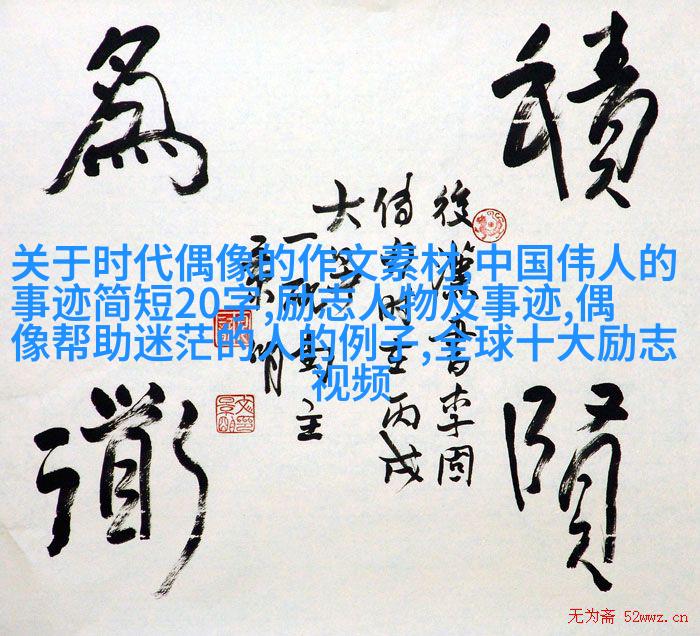 積賢
為道
後漢書李固
时在丙戌
关于时代偶像的作文素材,中国伟人的
事迹简短20字,励志人物及事迹,偶
像帮助迷茫的人的例子,全球十大励志
视频
无为斋 52wwz.cn